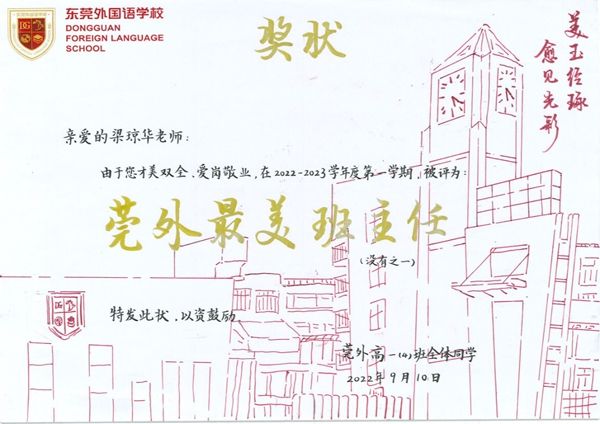 东莞外国语学校
DONGGUAN
FOREIGN LANGUAGE
SCHOOL
奖状
美玉经琢
愈见光彩
亲爱的梁琼华老师:
由于您才美双全、爱岗敬业,在2022-2023学年度第一学期,被评为:
莞外最美班主任
(没有之一)
特发此状,以资鼓励.
莞外高一(4)班全体同学
2022年9月10日